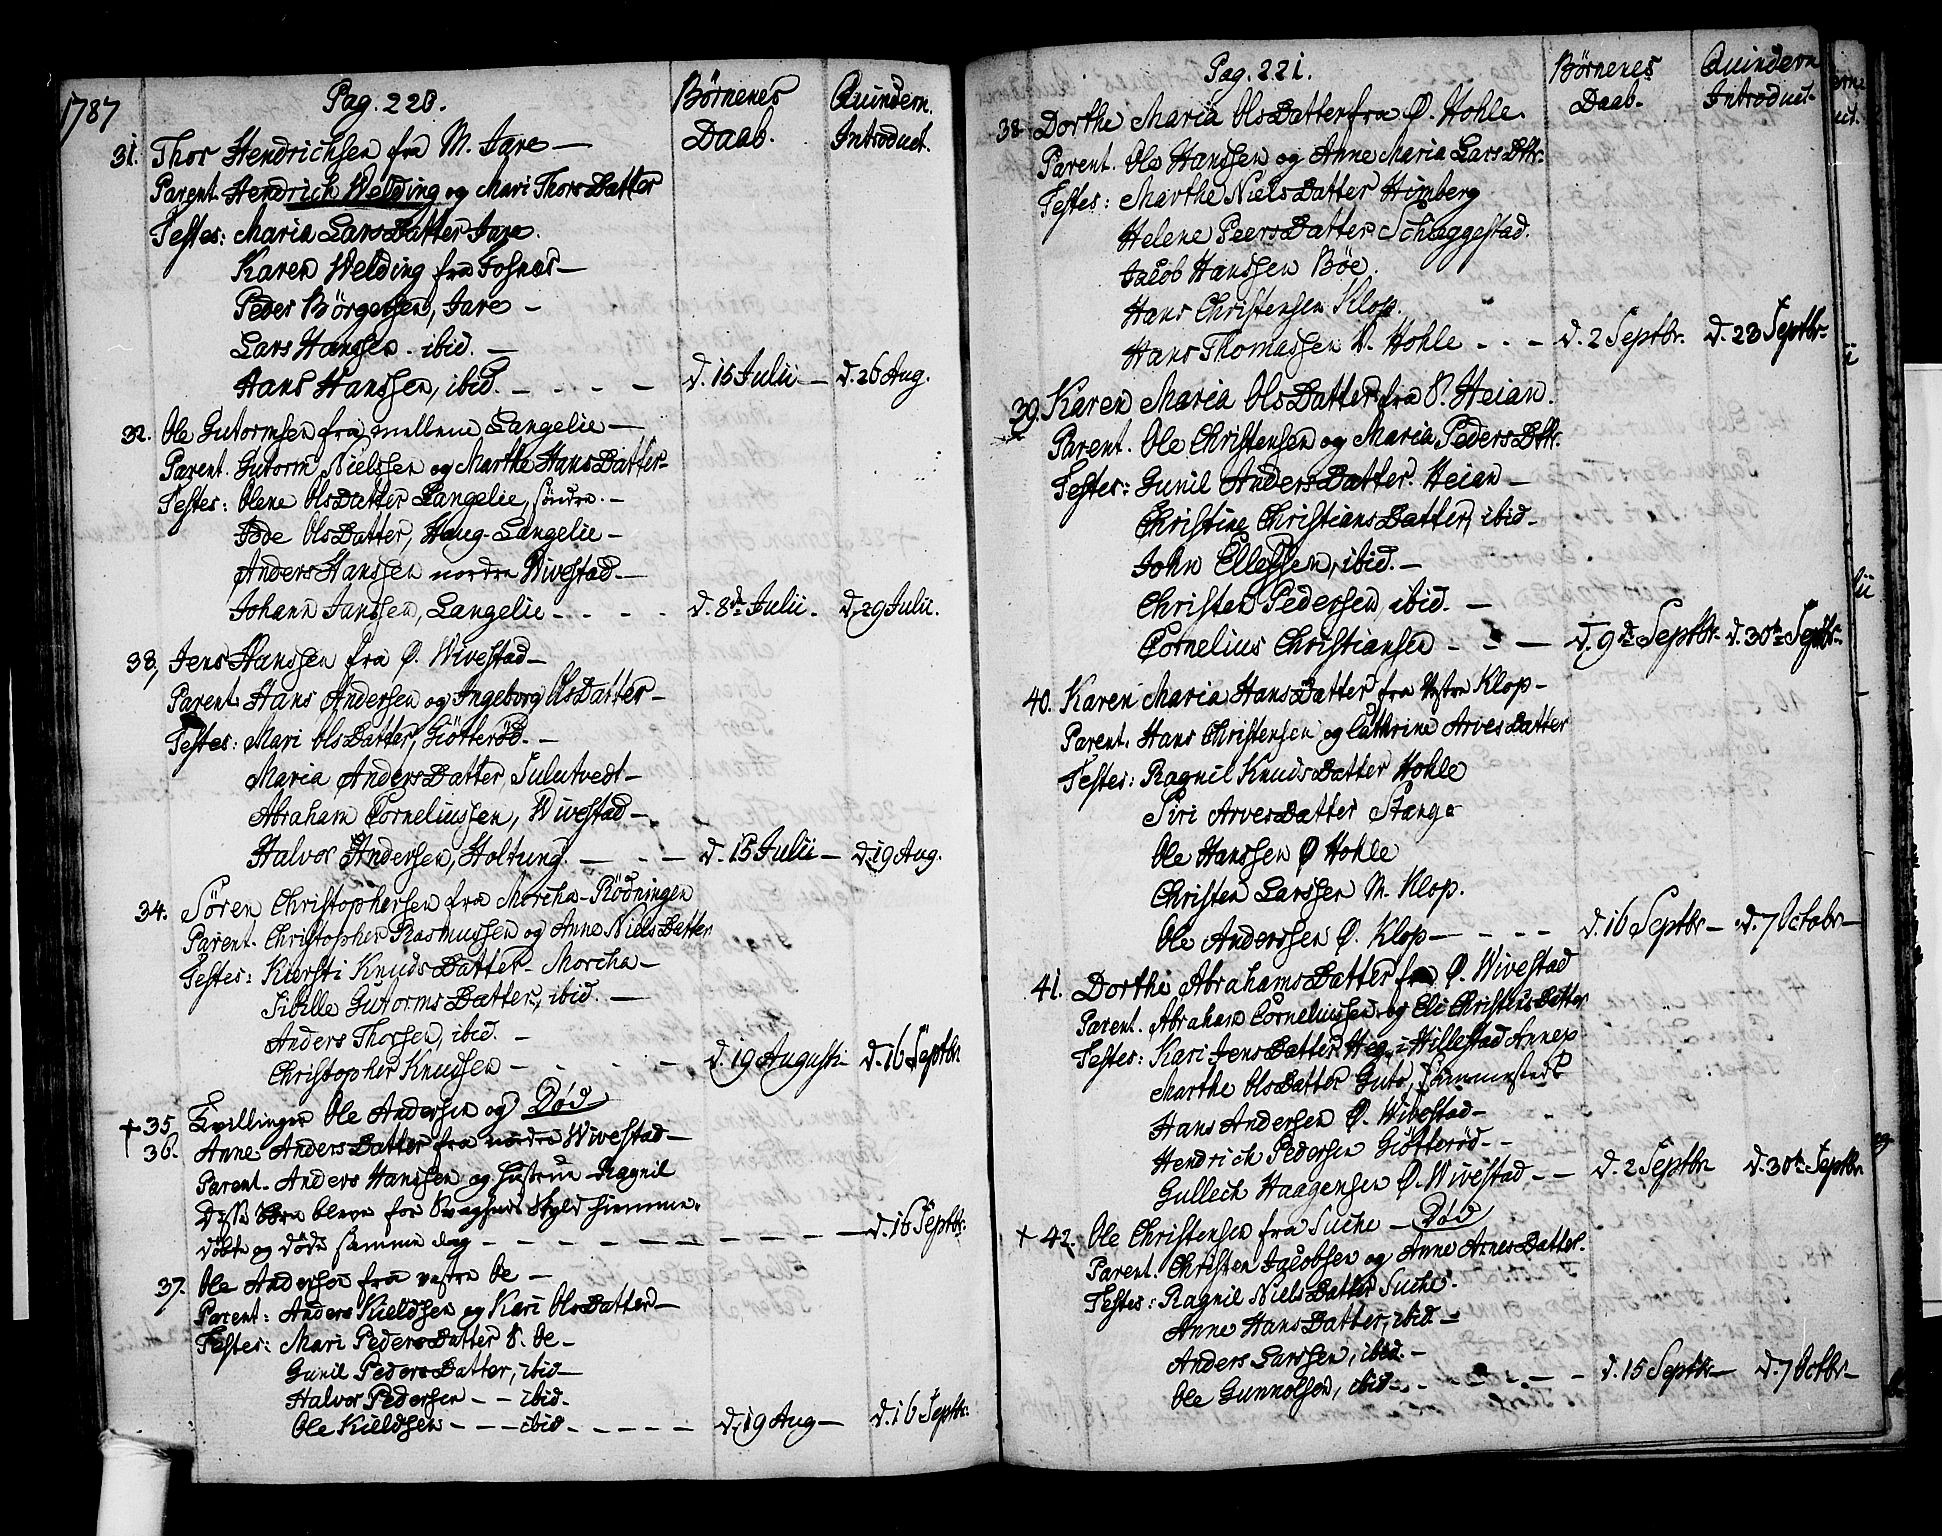 1787
Pag. 220.
Börnenes Daab.
Quindern. Introduct.
31. Thor Hendrichsen fra M. Jare —
Parent. Hendrich Welding og Mari ThorsDatter
Testes: Maria LarsDatter Jare.
Karen Welding fra Fosnæs —
Peder Börgersen, Jare —
Lars Hanssen. ibid. —
Hans Hanssen, ibid. — - - - d. 15 Julii — d. 26 Aug.
32. Ole Gutormsen fra mellem Langelie —
Parent. Gutorm Nielssen og Marthe HansDatter —
Testes: Olene OlsDatter Langelie, söndre. —
Tode OlsDatter, Haug-Langelie —
Anders Hanssen nordre Wivestad —
Johann Janssen, Langelie - - - - d. 8de Julii - d. 29 Julii.
33, Jens Hanssen fra Ø. Wivestad —
Parent Hans Andersen og Ingeborg OlsDatter —
Testes: Mari OlsDatter, Giötteröd. —
Maria AndersDatter, Sulutvedt —
Abraham Corneliussen, Wivestad —
Halvor Andersen, Holtung. — - - d. 15 Julii — d. 19 Aug.
34. Sören Christophersen fra Morcha-Rödningen
Parent. Christopher Rasmussen og Anne NielsDatter
Testes: Kiersti KnudsDatter - Morcha —
Sibille GutormsDatter, ibid. —
Anders Thorsen, ibid. —
Christopher Knudsen — - - - d. 19 Augusti - d. 16 Septbr
+ 35. Tvillinger Ole Andersen og Død
36. Anne AndersDatter fra nordre Wivestad —
Parent. Anders Hanssen og Hustrue Ragnil
Disse Börn bleve for Svaghed Skyld hiemme-
döbte og döde samme dag - - - - - d. 16 Septbr.
37. Ole Andersen fra vestre Oe —
Parent: Anders Kieldsen og Kari OlsDatter —
Testes: Mari PedersDatter V. Oe —
Gunil PedersDatter, ibid —
Halvor Pedersen - - ibid.
Ole Kieldsen - - - ibid - - - - - d. 19 Aug — d. 16 Septbr.
Pag. 221.
Börnenes Daab.
Quindern Introduct.
38. Dorthe Maria OlsDatter fra Ø. Hohle.
Parent. Ole Hanssen og Anne Maria LarsDttr.
Testes: Marthe NielsDatter Himberg
Helene PeersDatter Schæggestad.
Jacob Hanssen Böe.
Hans Christensen Klop.
Hans Thomassen V. Hohle - - - d. 2 Septbr. d. 23 Septbr.
39. Karen Maria OlsDatter fra V. Heian.
Parent. Ole Christensen og Maria PedersDttr.
Testes: Gunil AndersDatter. Heian —
Christine ChristiansDatter, ibid —
John Ellefsen, ibid. —
Christen Pedersen, ibid. —
Cornelius Christiansen - - — d. 9de Septbr - d. 30te Septbr.
40. Karen Maria HansDatter fra Vestre Klop —
Parent. Hans Christensen og Cathrine ArvesDatter
Testes: Ragnil KnudsDatter Hohle
Siri ArvesDatter Stange
Ole Hanssen Ø Hohle
Christen Larssen M. Klop.
Ole Anderssen Ø. Klop — - - - d. 16 Septbr — d. 7 Octobr —
41. Dorthe AbrahamsDatter fra Ø. Wivestad
Parent. Abraham Corneliussen og Eli ChristensDatter
Testes: Kari JensDatter Heg i Hillestad Annex
Marthe OlsDatter Guto, Sammested
Hans Andersen Ø. Wivestad —
Hendrich Pedersen Giötteröd —
Gullech Haagensen Ø. Wivestad - - d. 2 Septbr d. 30te Septbr
+ 42. Ole Christensen fra Suche — Död
Parent. Christen Jacobsen og Anne ArnesDatter.
Testes: Ragnil NielsDatter Suche.
Anne HansDatter, ibid —
Anders Larssen, ibid. —
Ole Gunnolsen, ibid - - - - - d. 15 Septbr — d. 7 Octbr —